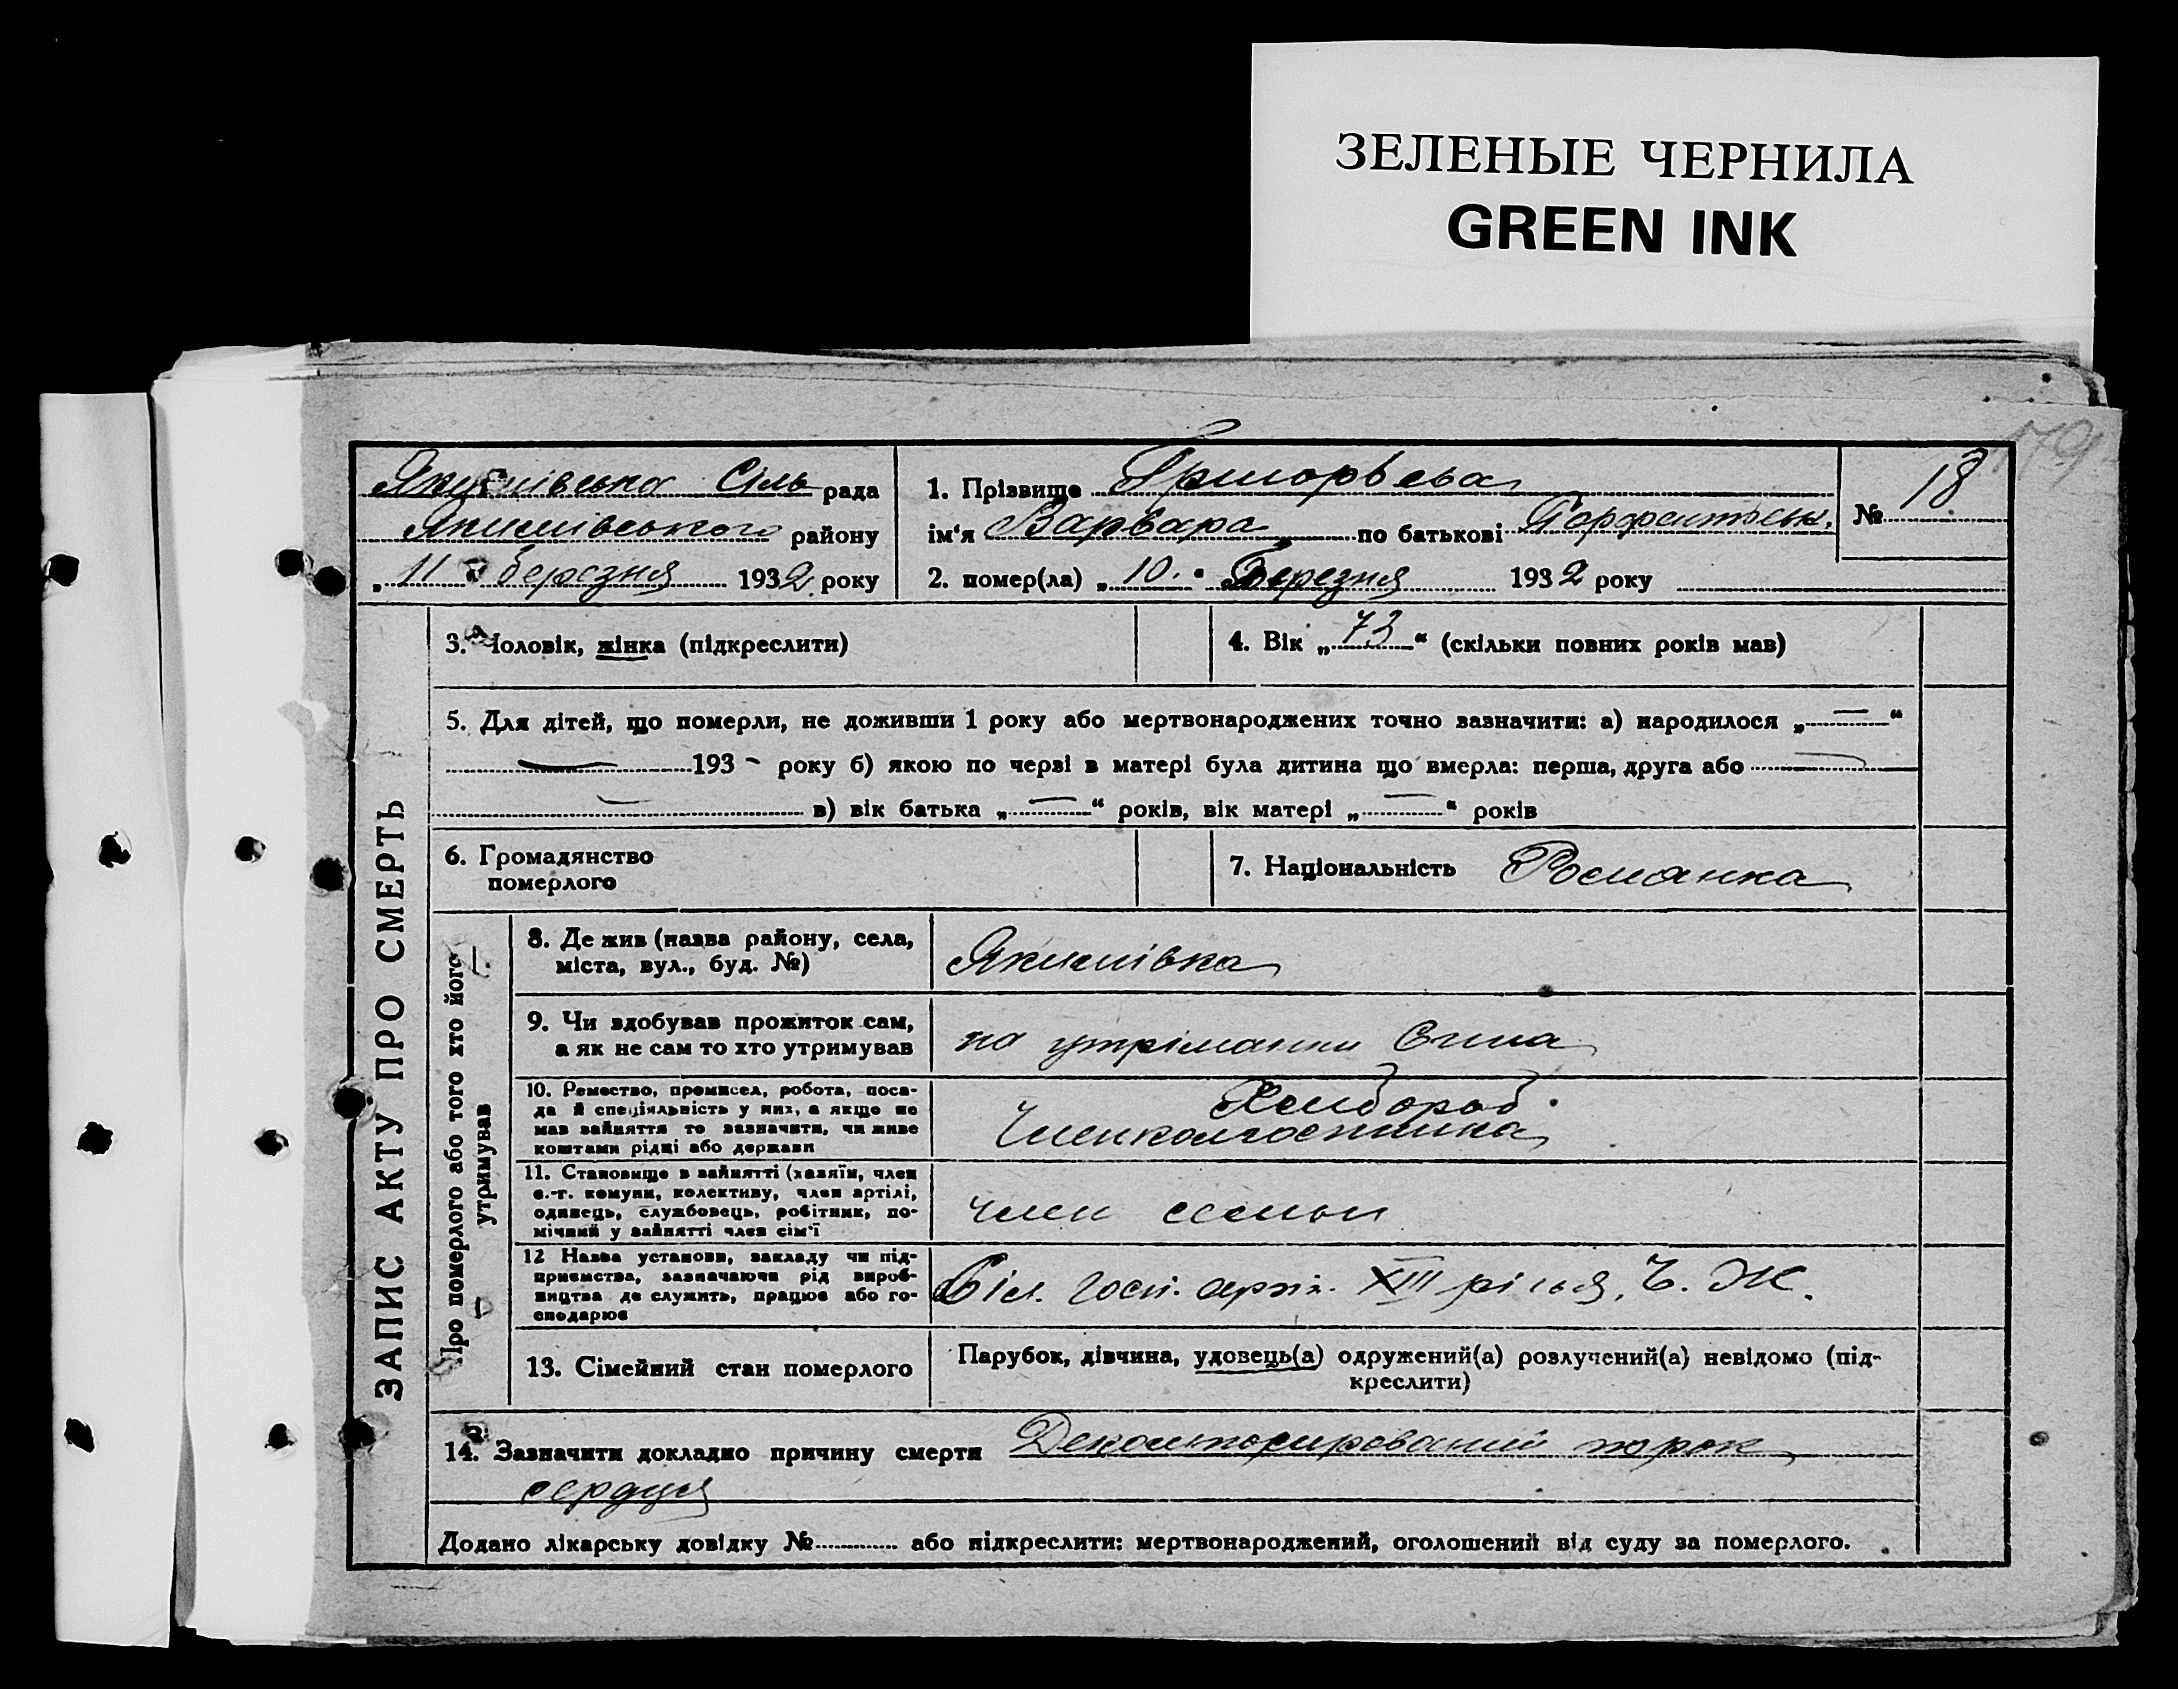 ЗЕЛЕНЫЕ ЧЕРНИЛА
GREEN INK
179
Якимівська Сіль рада
Якимівського району
„ 11 " березня 1932 року
1. Прізвище
ім‘я Варвара по батькові
2. помер(ла) „ 10. " Березня 1932 року
№ 18
ЗАПИС АКТУ ПРО СМЕРТЬ
3. Чоловік, жінка (підкреслити)
4. Вік „ 73 “ (скільки повних років мав)
5. Для дітей, що померли, не доживши 1 року або мертвонароджених точно зазначити: а) народилося „ — “
— 193 - року б) якою по черзі в матері була дитина що вмерла: перша, друга або —
— в) вік батька „ — “ років, вік матері „ — “ років
6. Громадянство
померлого
7. Національність Росианка
Про померлого або того хто його
утримував
8. Де жив (назва району, села,
міста, вул., буд. №)
Якимівка
9. Чи здобував прожиток сам,
а як не сам то хто утримував
на утріманни Сина
10. Ремество, промисел, робота, поса-
да й спеціяльність у них, а якщо не
мав зайняття то зазначити, чи живе
коштами рідні або держави
Хлибороб.
Член
11. Становище в зайнятті (хазяїн, член
с.-г. комуни, колективу, член артілі,
одинець, службовець, робітник, по-
мічний у зайнятті член сім‘ї
член семьи
12 Назва установи, закладу чи під-
приємства, зазначаючи рід вироб-
ництва де служить, працює або го-
сподарює
Сіл. Госп. арт. XIII річья, Ч. Ж.
13. Сімейний стан померлого
Парубок, дівчина, удовець(а) одружений(а) розлучений(а) невідомо (під-
креслити)
14. Зазначити докладно причину смерти Декомпенсирований порок
сердця
Додано лікарську довідку № або підкреслити: мертвонароджений, оголошений від суду за померлого.